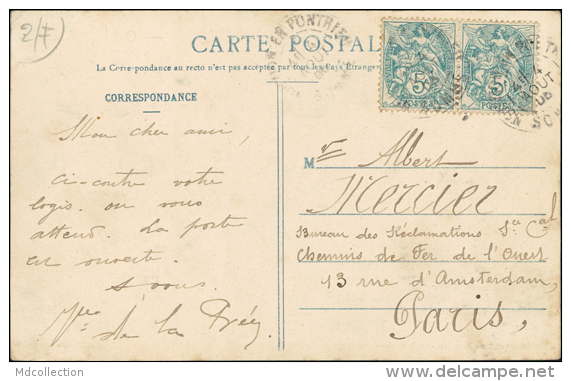 2/7
CARTE POSTALE
La Correspondance au recto n'est pas acceptée par tous les Pays Étrangers
CORRESPONDANCE
Mon cher ami,
ci-contre votre
logis. on vous
attend. La porte
est ouverte.
à vous.
de la
Mr Albert
Mercier
Bureau des Réclamations
Chemins de Fer de l'Ouest
13 rue d'Amsterdam,
Paris,
5c 5c
POSTES POSTES
AOUT
Mdcollection
www.delcampe.net